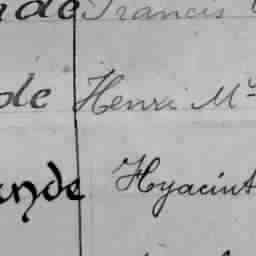 de Francis
de Henri Mc
ande Hyacint